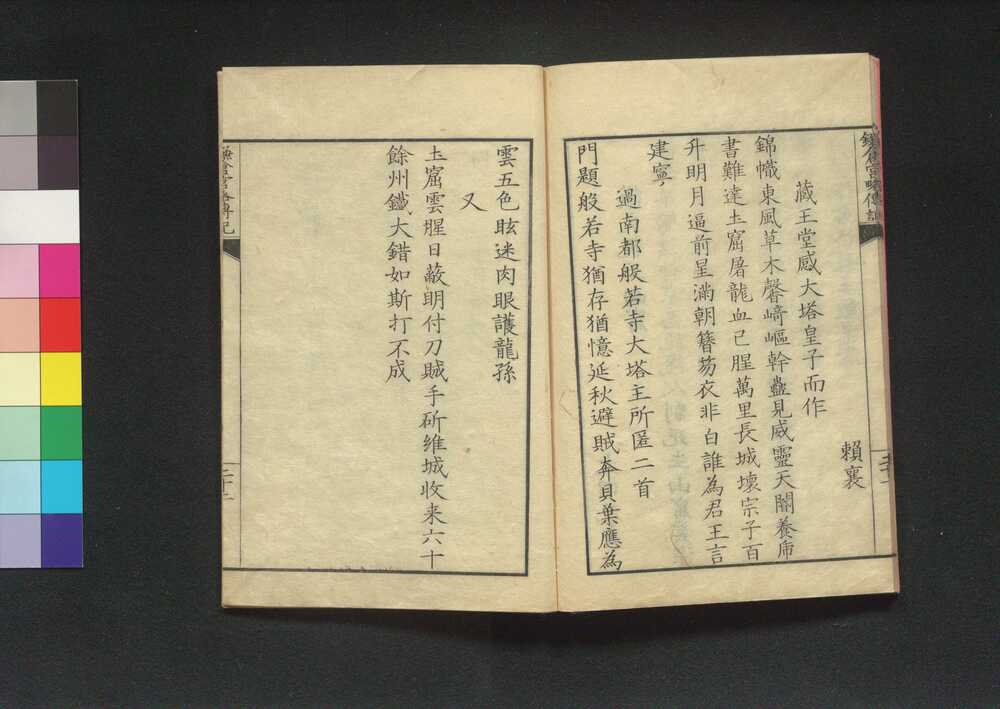 鎌倉宮略傳記
藏王堂感大塔皇子而作
賴襄
錦幟東風草木馨﨑嶇幹蠱見威靈天閽養庿
書難達土窟屠龍血已腥萬里長城壞宗子百
升明月逼前星滿朝簪笏衣非白誰為君王言
建寧
過南都般若寺大塔主所匿二首
門題般若寺猶存猶憶延秋避賊奔貝葉應為
雲五色眩迷肉眼護龍孫
又
土窟雲腥日蔽明付刀賊手斫維城收来六十
餘州鐵大錯如斯打不成
鎌倉宮略傳記
二十二